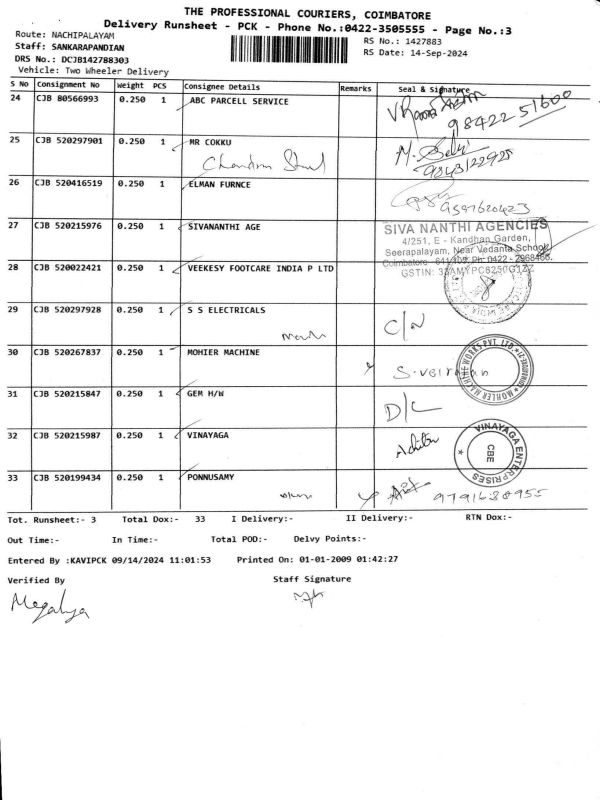 THE PROFESSIONAL COURIERS, COIMBATORE
Delivery Runsheet - PCK - Phone No.:0422-3505555 - Page No.:3
Route: NACHIPALAYAM
RS No.: 1427883
Staff: SANKARAPANDIAN
RS Date: 14-Sep-2024
DRS No.: DCJB142788303
Vehicle: Two Wheeler Delivery
S No Consignment No Weight PCS Consignee Details Remarks Seal & Signature
24 CJB 80566993 0.250 1 ABC PARCELL SERVICE
98422 51600
25 CJB 520297901 0.250 1 MR COKKU
9843122925
26 CJB 520416519 0.250 1 ELMAN FURNCE
9597620423
27 CJB 520215976 0.250 1 SIVANANTHI AGE
SIVA NANTHI AGENCIES
4/251, E - Kandhan Garden,
Seerapalayam, Near Vedanta School,
Coimbatore Ph: 0422 - 2968466.
28 CJB 520022421 0.250 1 VEEKESY FOOTCARE INDIA P LTD
GSTIN: 33AMYPC6250G1ZZ
29 CJB 520297928 0.250 1 S S ELECTRICALS
C/N
30 CJB 520267837 0.250 1 MOHIER MACHINE
MOHLER MACHINE WORKS PVT. LTD.
31 CJB 520215847 0.250 1 GEM H/W
D/L
32 CJB 520215987 0.250 1 VINAYAGA
VINAYAGA ENTERPRISES
CBE
33 CJB 520199434 0.250 1 PONNUSAMY
9791638955
Tot. Runsheet:- 3 Total Dox:- 33 I Delivery:- II Delivery:- RTN Dox:-
Out Time:- In Time:- Total POD:- Delvy Points:-
Entered By :KAVIPCK 09/14/2024 11:01:53 Printed On: 01-01-2009 01:42:27
Verified By Staff Signature